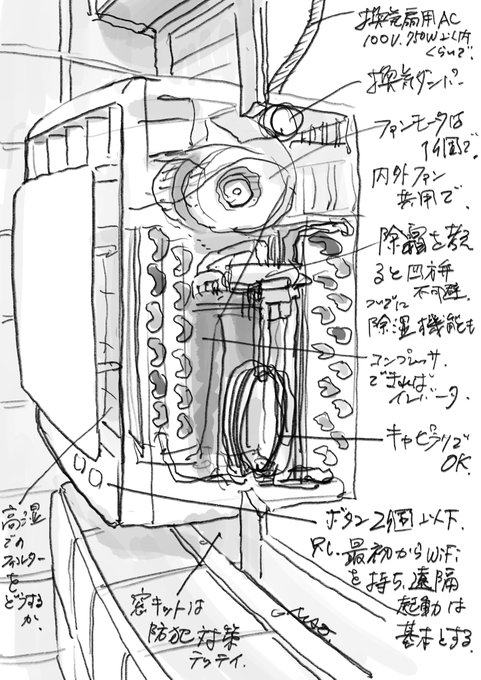 換気扇用AC
100V.750W以内
くらいで.
換気ダンパー
ファンモータは
1個で.
内外ファン
共用で.
除霜を考え
ると四方弁
不可避.
ついでに
除湿機能も
コンプレッサ.
できれば
インバータ.
キャピラリで
OK.
ボタン2個以下.
只し、最初からWiFi
を持ち、遠隔
起動は
基本とする.
高湿
での
フィルター
を
どうする
か.
窓キットは
防犯対策
テッテイ.